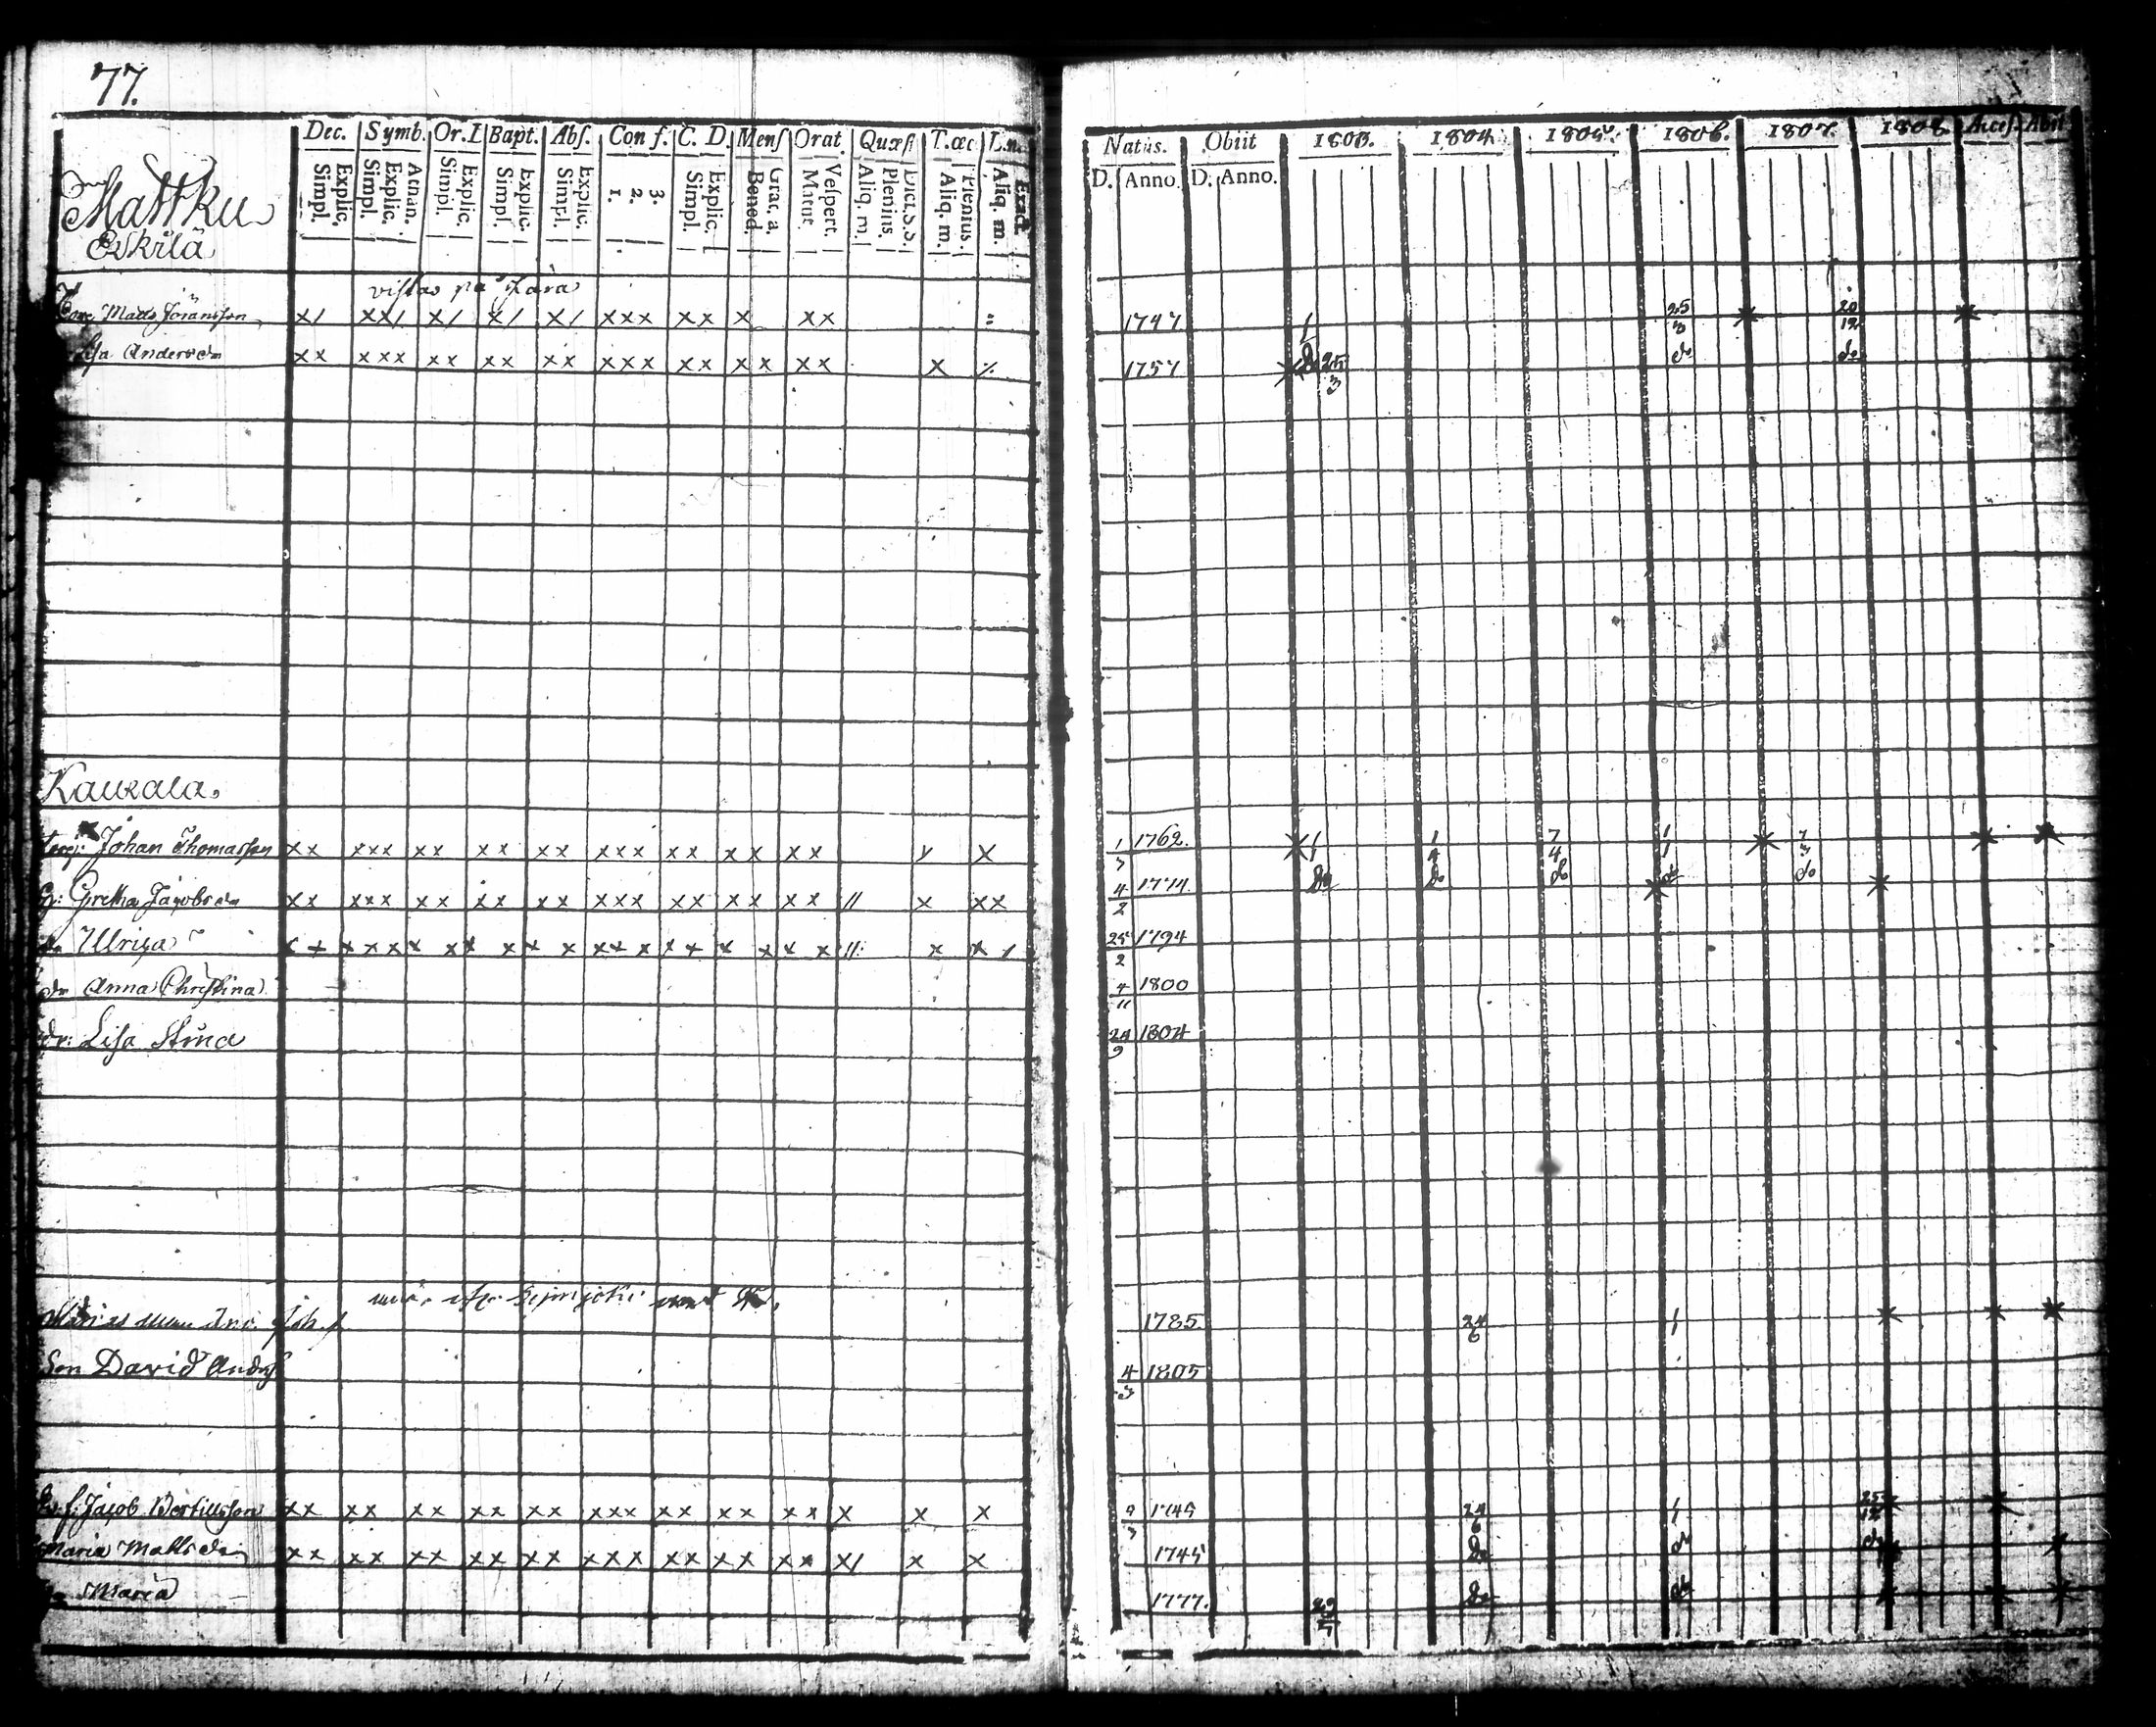 77.
Dec. Symb. Or. D Bapt. Abs. Conf. C. D. Mens Orat. Quæst T. œc L. n.
Explic. Simpl. Athan. Explic. Simpl. Explic. Simpl. Explic. Simpl. Explic. Simpl. 3. 2. 1. Explic. Simpl. Grat. a. Bened. Vespert. Matut. Dict. S. S. Plenius. Aliq. m. Plenius. Aliq. m. Exact. Aliq. m.
Natus. Obiit 1803. 1804. 1805. 1806. 1807. 1808. Acces. Abit
D. Anno. D. Anno.
Mattku
Eskilä
vistas på
Matts Jöransson x/ xx/ x/ x/ x/ xxx xx x xx 1747 1 25/3 20/12
Lisa Andersdr xx xxx xx xx xx xxx xx xx xx x 1757 do 25/3 do do
Kaukala.
Johan Thomasson xx xxx xx xx xx xxx xx xx xx x 1/3 1762. 1/1 1/4 7/4 1/1 7/3
Gretha Jacobsdr xx xxx xx xx xx xxx xx xx xx // x xx 4/2 1774 do do do do do
Ulrica 25/2 1794
dr Anna Christina 4/11 1800
dr: Lisa Stina 24/9 1804
1785. 24/6 1
Son David 4/3 1805
Jacob Bertillsson xx xx xx xx xx xxx xx xx xx x x x 1745 24/6 1 25/12
Maria Mattsdr xx xx xx xx xx xxx xx xx xx x/ x x 1745 do do do
Maria 1777. 29/7 do do